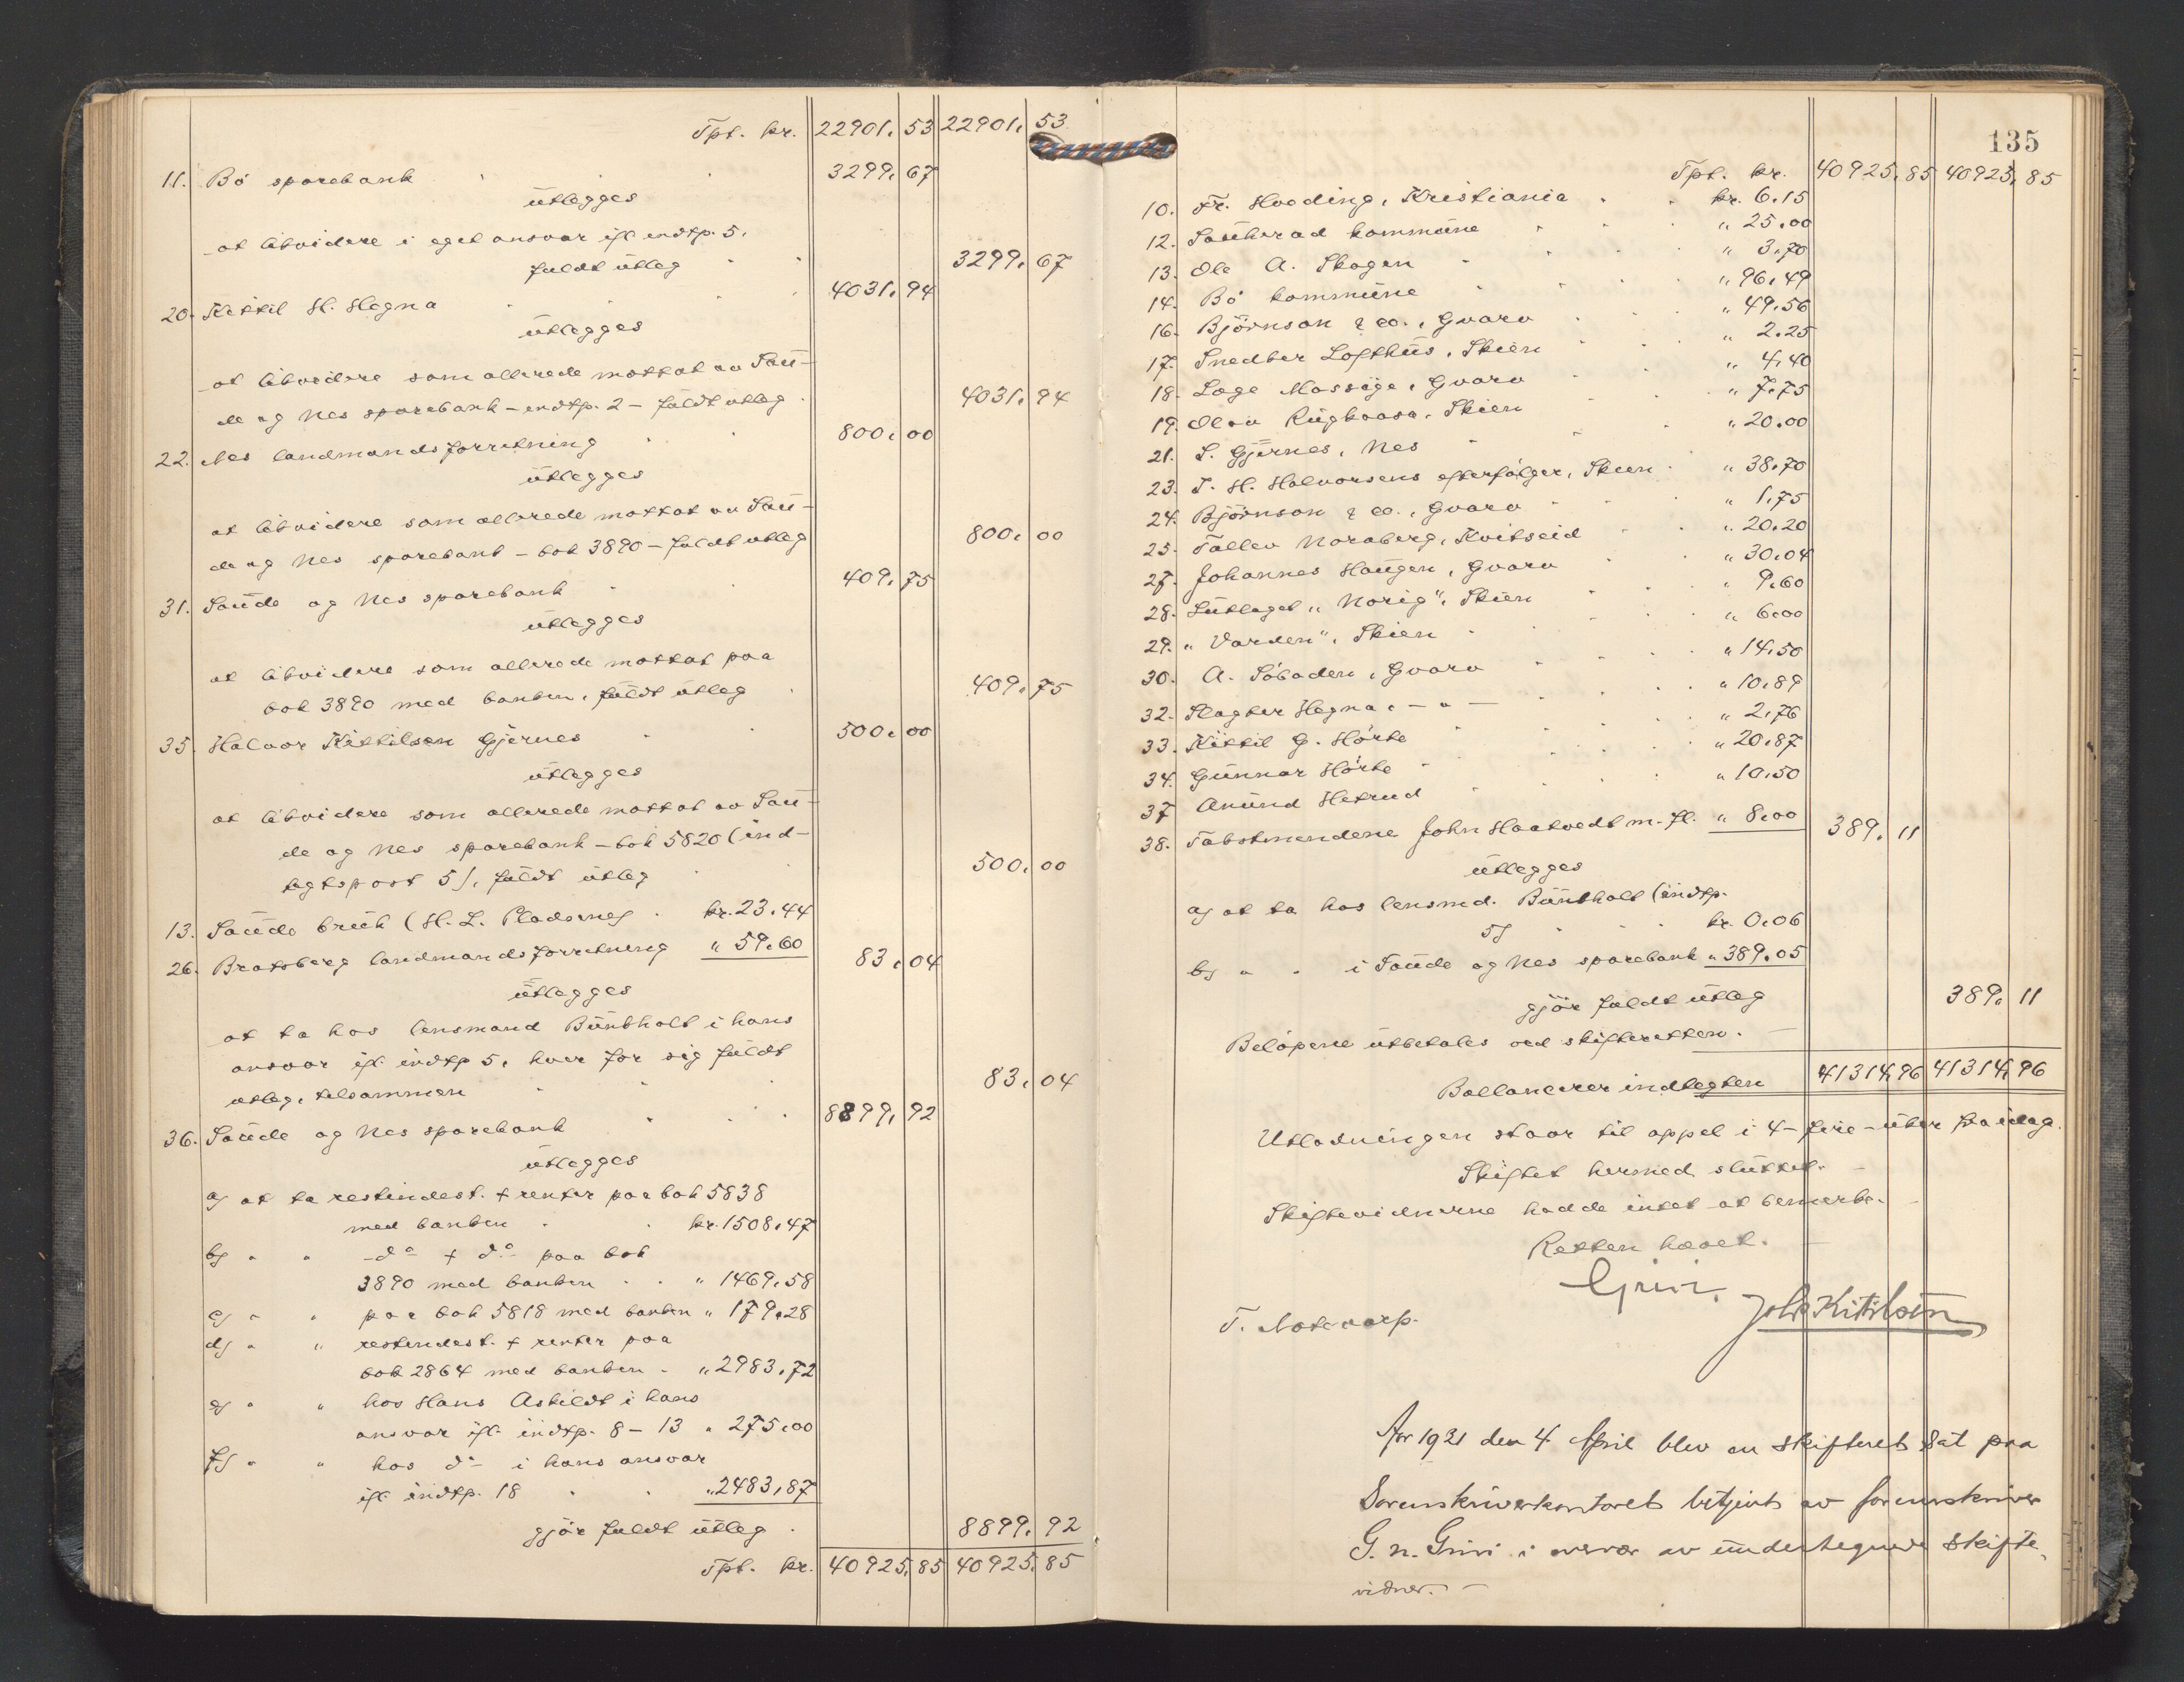 Tpt. kr. 22901,53 22901,53
11. Bø sparebank 3299,67
utlægges
at likvidere i eget ansvar ifl. indtp. 5,
fuldt utlæg 3299,67
20. Kittil H. Hegna 4031,94
utlægges
at likvidere som allerede mottat av Sau-
de og Nes sparebank – indtp. 2 – fuldt utlæg 4031,94
22. Nes landmandsforretning 800,00
utlægges
at likvidere som allerede mottat av Sau-
de og Nes sparebank – bok 3890 – fuldt utlæg 800,00
31. Saude og Nes sparebank 409,75
utlægges
at likvidere som allerede mottat paa
bok 3890 med banken, fuldt utlæg 409,75
35. Halvor Kittilsen Gjernes 500,00
utlægges
at likvidere som allerede mottat av Sau-
de og Nes sparebank – bok 5820 (ind-
tægtspost 5), fuldt utlæg 500,00
13. Saude bruk (H. L. Pladsernes) kr. 23,44
26. Bratsberg landmandsforretning " 59,60 83,04
utlægges
at ta hos lensmand Bunkholt i hans
ansvar ifl. indtp 5, hver for sig fuldt
utlæg, tilsammen 83,04
36. Saude og Nes sparebank 8899,92
utlægges
a) at ta restindest. + renter paa bok 5838
med banken kr. 1508,47
b) " " do + do paa bok
3890 med banken " 1469,58
c) " " paa bok 5818 med banken " 179,28
d) " " restindest. + renter paa
bok 2864 med banken " 2983,72
e) " " hos Hans Askildt i hans
ansvar ifl. indtp. 8 – 13 " 275,00
f) " " hos do i hans ansvar
ifl. indtp. 18 " 2483,87
gjør fuldt utlæg 8899,92
Tpt. kr. 40925,85 40925,85
135
Tpt. kr. 40925,85 40925,85
10. Fr. Hvoding, Kristiania kr. 6,15
12. Sauherad kommune " 25,00
13. Ole A. Skogen " 3,70
14. Bø kommune " 96,49
16. Bjørnson & co., Gvarv " 49,56
17. Snedker Lofthus, Skien " 2,25
18. Lage Massige, Gvarv " 4,40
19. Olea Rugkaasa, Skien " 7,75
21. S. Gjernes, Nes " 20,00
23. T. H. Halvorsens efterfølger, Skien " 38,70
24. Bjørnson & co., Gvarv " 1,75
25. Tallev Naraberg, Kvitseid " 20,20
27. Johannes Haugen, Gvarv " 30,04
28. Lutlaget "Norig", Skien " 9,60
29. "Varden", Skien " 6,00
30. A. Søbaden, Gvarv " 14,50
32. Slagter Hegna, – " – " 10,89
33. Kittil G. Hørte " 2,76
34. Gunnar Hørte " 20,87
37 Anund Hetrud " 10,50
38. Takstmendene John Haatvedt m. fl. " 8,00 389,11
utlægges
a) at ta hos lensmd. Bunkholt (indtp.
5) kr. 0,06
b) " " i Saude og Nes sparebank " 389,05
gjør fuldt utlæg 389,11
Beløpene utbetales ved skifteretten. –
Ballancerer indtægten 41314,96 41314,96
Utlodningen staar til appel i 4 – fire – uker fra idag.
Skiftet hermed sluttet. –
Skiftevidnerne hadde intet at bemerke. –
Retten hævet. –
Grivi.
T. Notevarp. Joh. Kittilsen
Aar 1921 den 4 April blev en skifteret sat paa
Sorenskriverkontoret betjent av sorenskriver
G. N. Grivi i nærvær av undertegnede skifte-
vidner. –